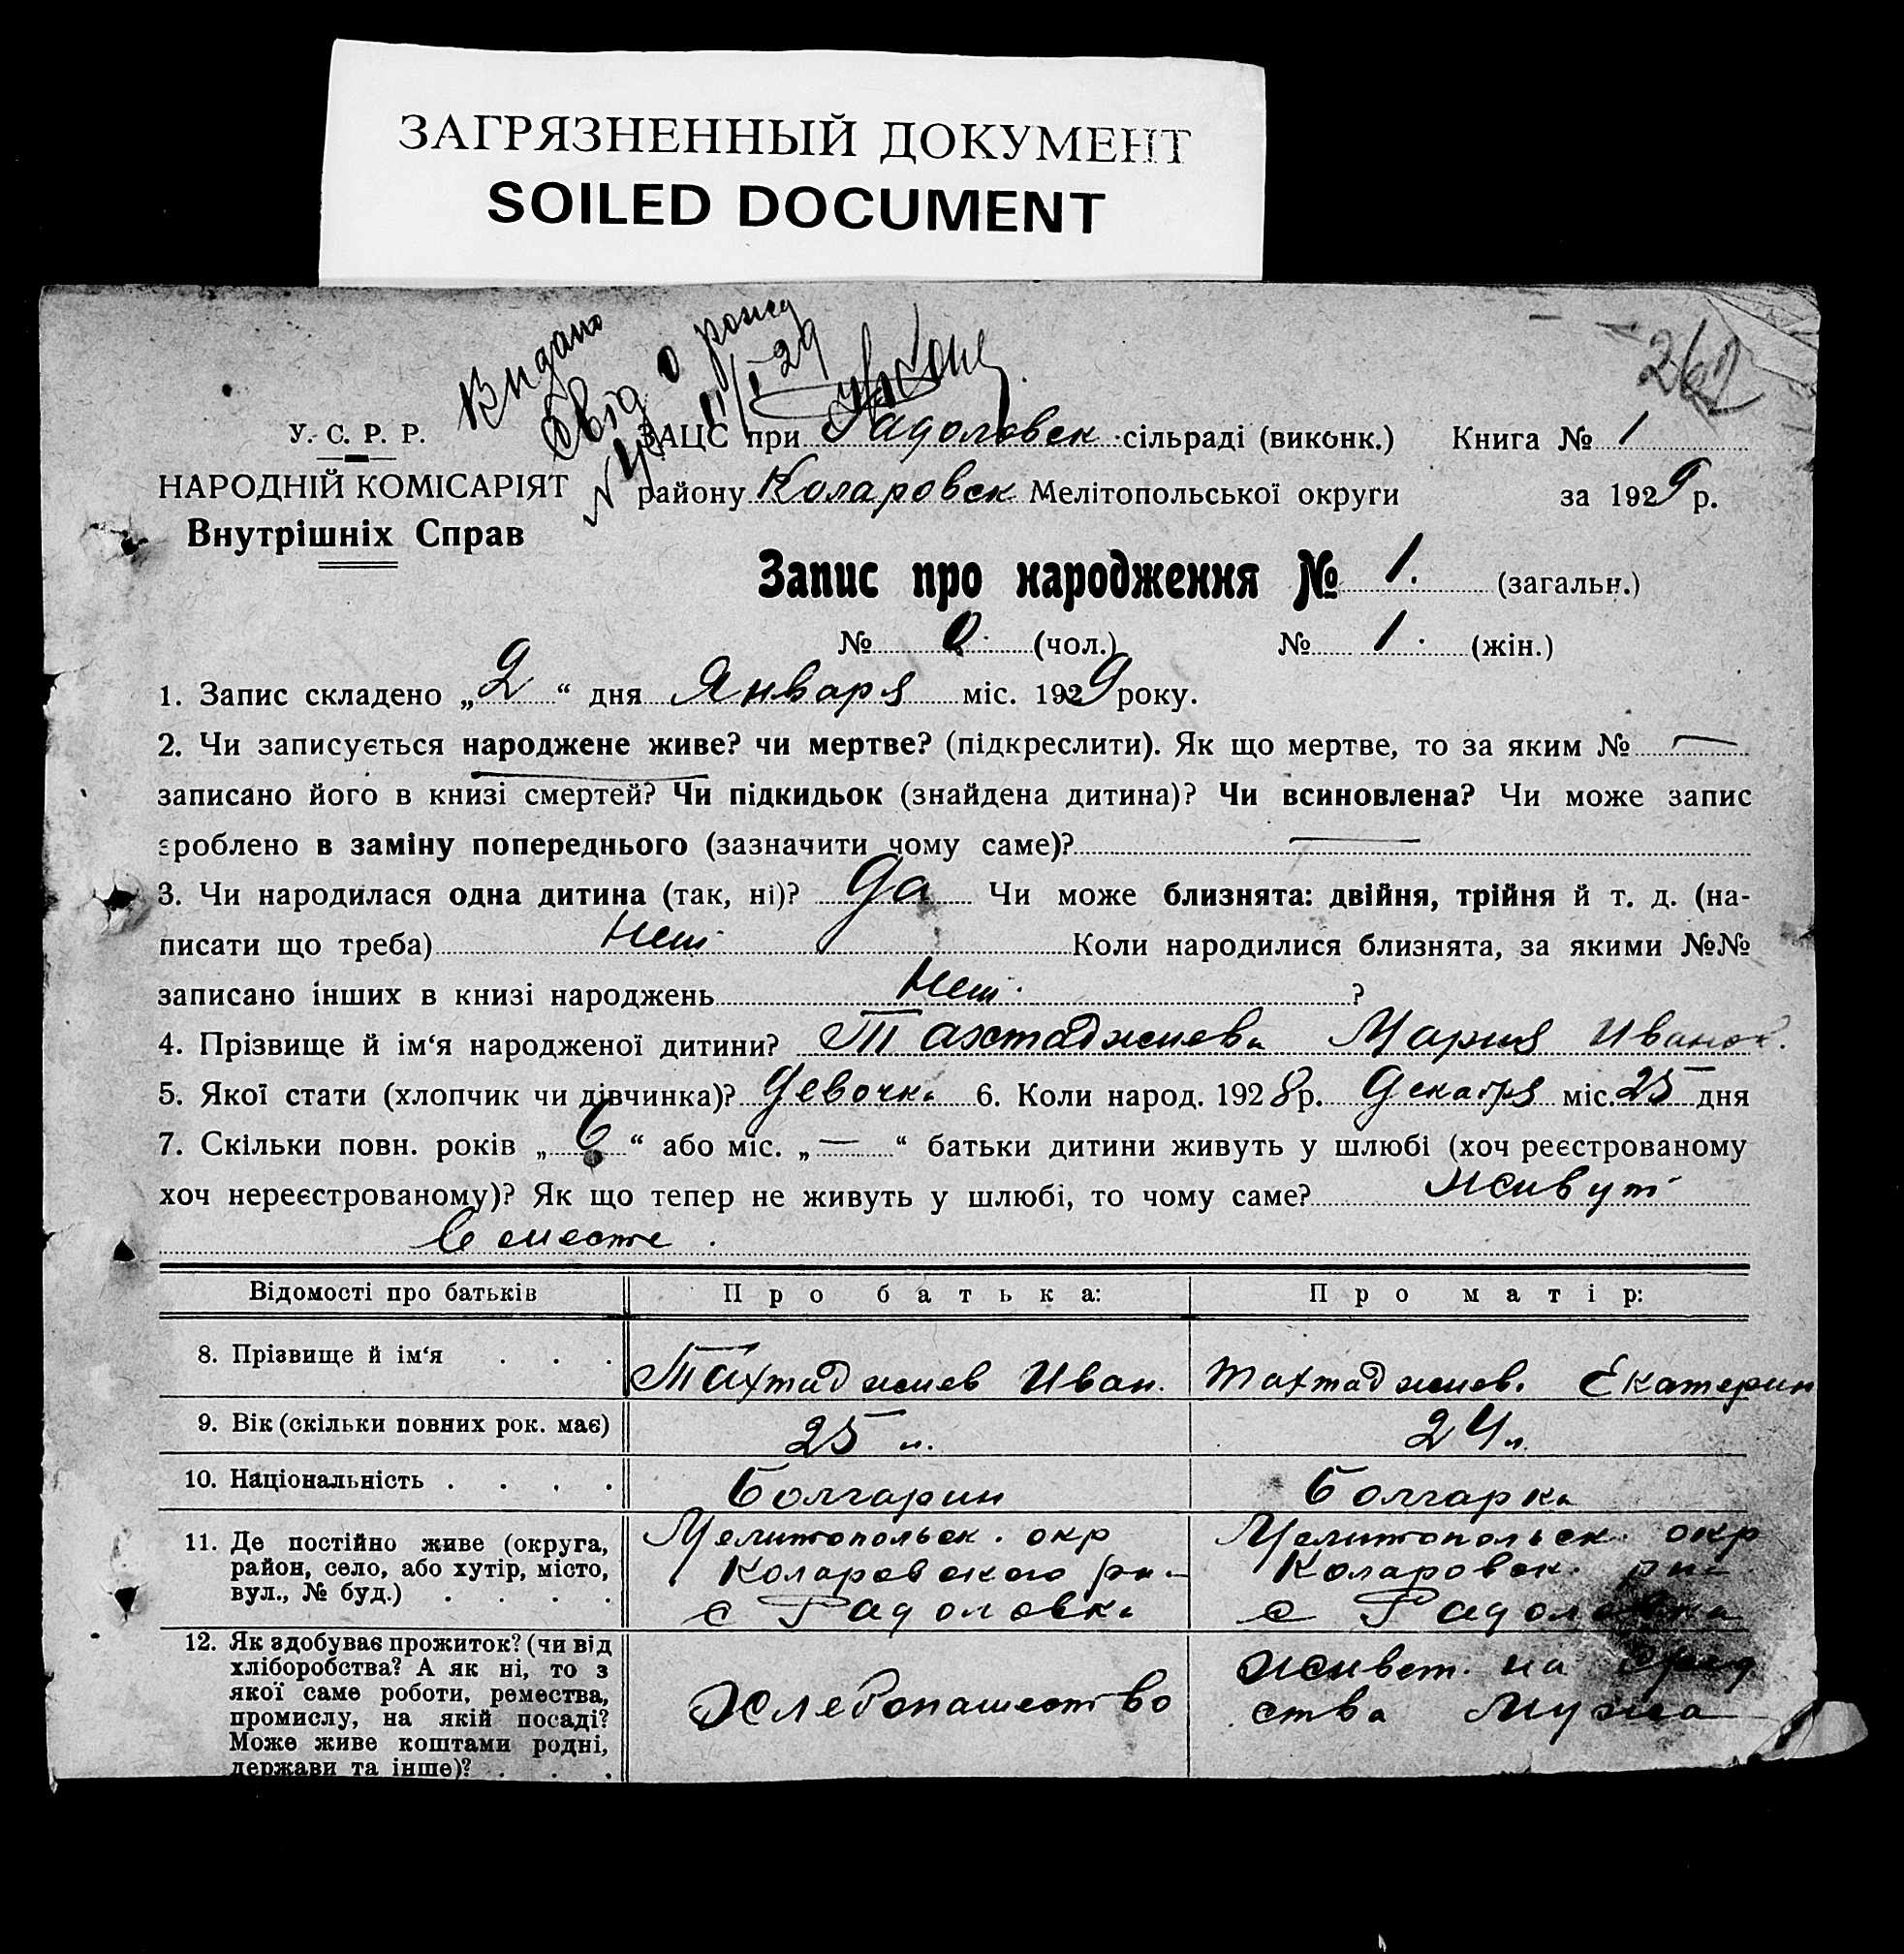 ЗАГРЯЗНЕННЫЙ ДОКУМЕНТ
SOILED DOCUMENT
262
Видано
Свід о рожд
№ 4 11/I-29
У. С. Р. Р.
НАРОДНІЙ КОМІСАРІЯТ
Внутрішніх Справ
ЗАЦС при Радоловск сільраді (виконк.) Книга № 1
району Коларовск Мелітопольської округи за 1929 р.
Запис про народження № 1. (загальн.)
№ 0 (чол.) № 1. (жін.)
1. Запис складено „2“ дня Января міс. 1929 року.
2. Чи записується народжене живе? чи мертве? (підкреслити). Як що мертве, то за яким № —
записано його в книзі смертей? Чи підкидьок (знайдена дитина)? Чи всиновлена? Чи може запис
зроблено в заміну попереднього (зазначити чому саме)? —
3. Чи народилася одна дитина (так, ні)? Да Чи може близнята: двійня, трійня й т. д. (на-
писати що треба) Нет Коли народилися близнята, за якими №№
записано інших в книзі народжень Нет ?
4. Прізвище й ім‘я народженої дитини? Тахтаджиева Мария Иванов.
5. Якої стати (хлопчик чи дівчинка)? Девочка 6. Коли народ. 1928 р. Декабря міс. 25 дня
7. Скільки повн. років „6“ або міс. „—“ батьки дитини живуть у шлюбі (хоч реєстрованому
хоч нереєстрованому)? Як що тепер не живуть у шлюбі, то чому саме? Живут
вместе.
Відомості про батьків Про батька: Про матір:
8. Прізвище й ім‘я . . . Тахтаджиев Иван. Тахтаджиев. Екатерин
9. Вік (скільки повних рок. має) 25 л. 24 л.
10. Національність . . . . Болгарин Болгарка
11. Де постійно живе (округа, район, село, або хутір, місто, вул., № буд.) . . . .
Мелитопольск. окр
Коларовского ра-
с Радоловка
Мелитопольск. окр
Коларовск. ра-
с Радоловка
12. Як здобуває прожиток? (чи від хліборобства? А як ні, то з якої саме роботи, ремества, промислу, на якій посаді? Може живе коштами родні, держави та інше)? . . .
Хлебопашество
живет. на сред
ства мужа